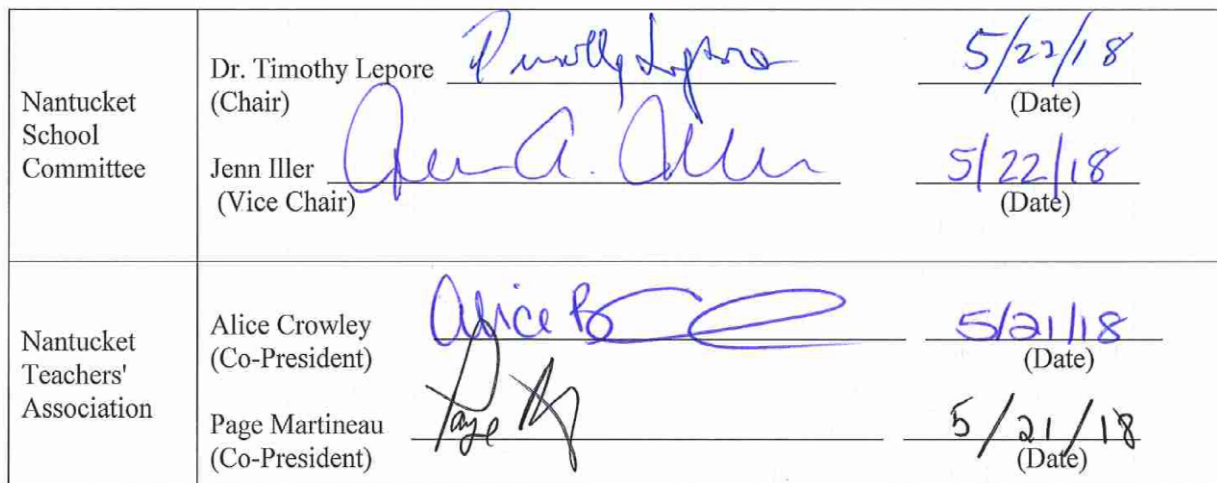 Nantucket
School
Committee
Dr. Timothy Lepore
(Chair)
5/22/18
(Date)
Jenn Iller
(Vice Chair)
5/22/18
(Date)
Nantucket
Teachers'
Association
Alice Crowley
(Co-President)
Alice
5/21/18
(Date)
Page Martineau
(Co-President)
Page
5/21/18
(Date)